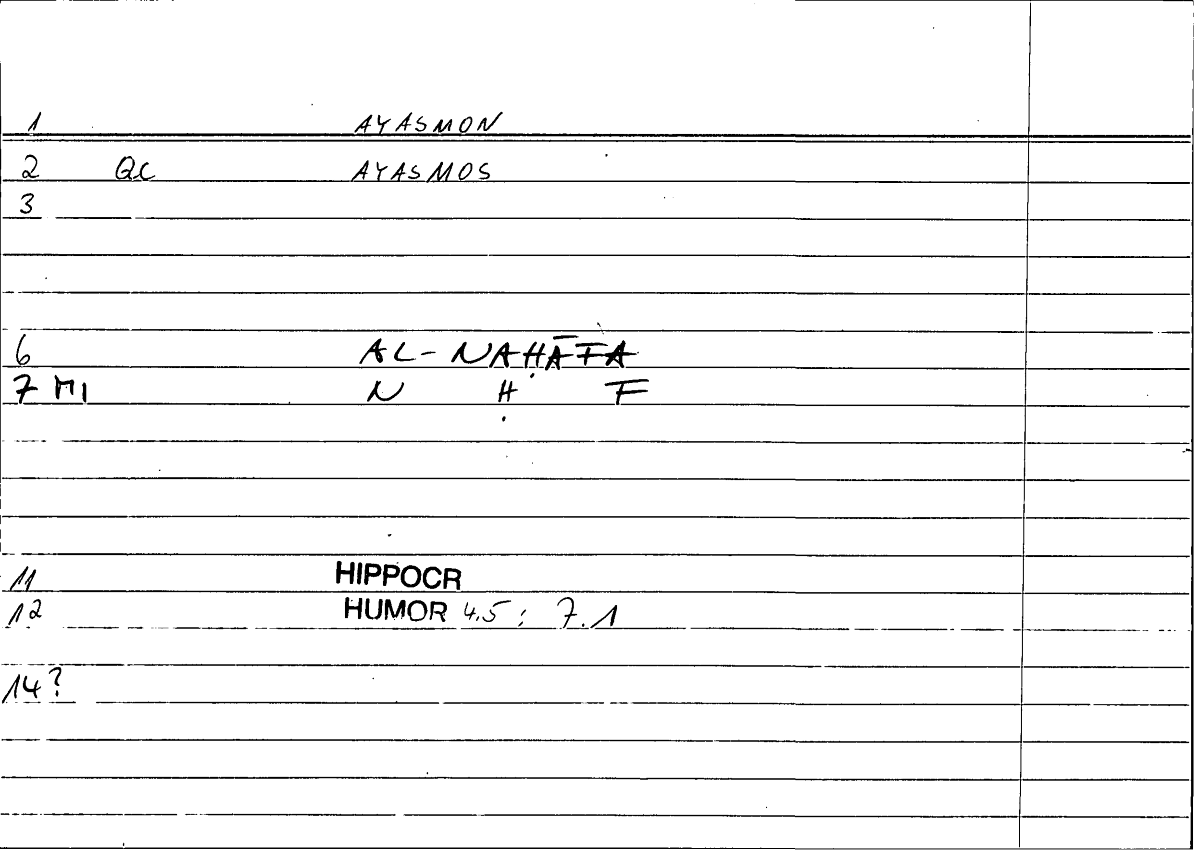 1 AYASMON
2 QC AYASMOS
3
6 AL-NAḤĀFA
7 M1 N Ḥ F
11 HIPPOCR
12 HUMOR 4.5; 7.1
14?